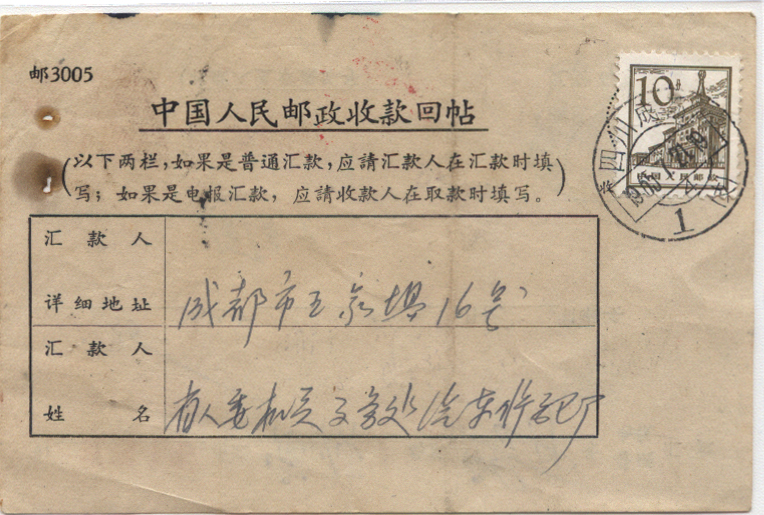 邮3005
中国人民邮政收款回帖
(以下两栏,如果是普通汇款,应請汇款人在汇款时填
写;如果是电报汇款,应請收款人在取款时填写。)
10分
中国人民邮政
四川成
1
汇款人
详细地址
成都市王家塘16号
汇款人
姓名
省人委机关 汽车修配厂